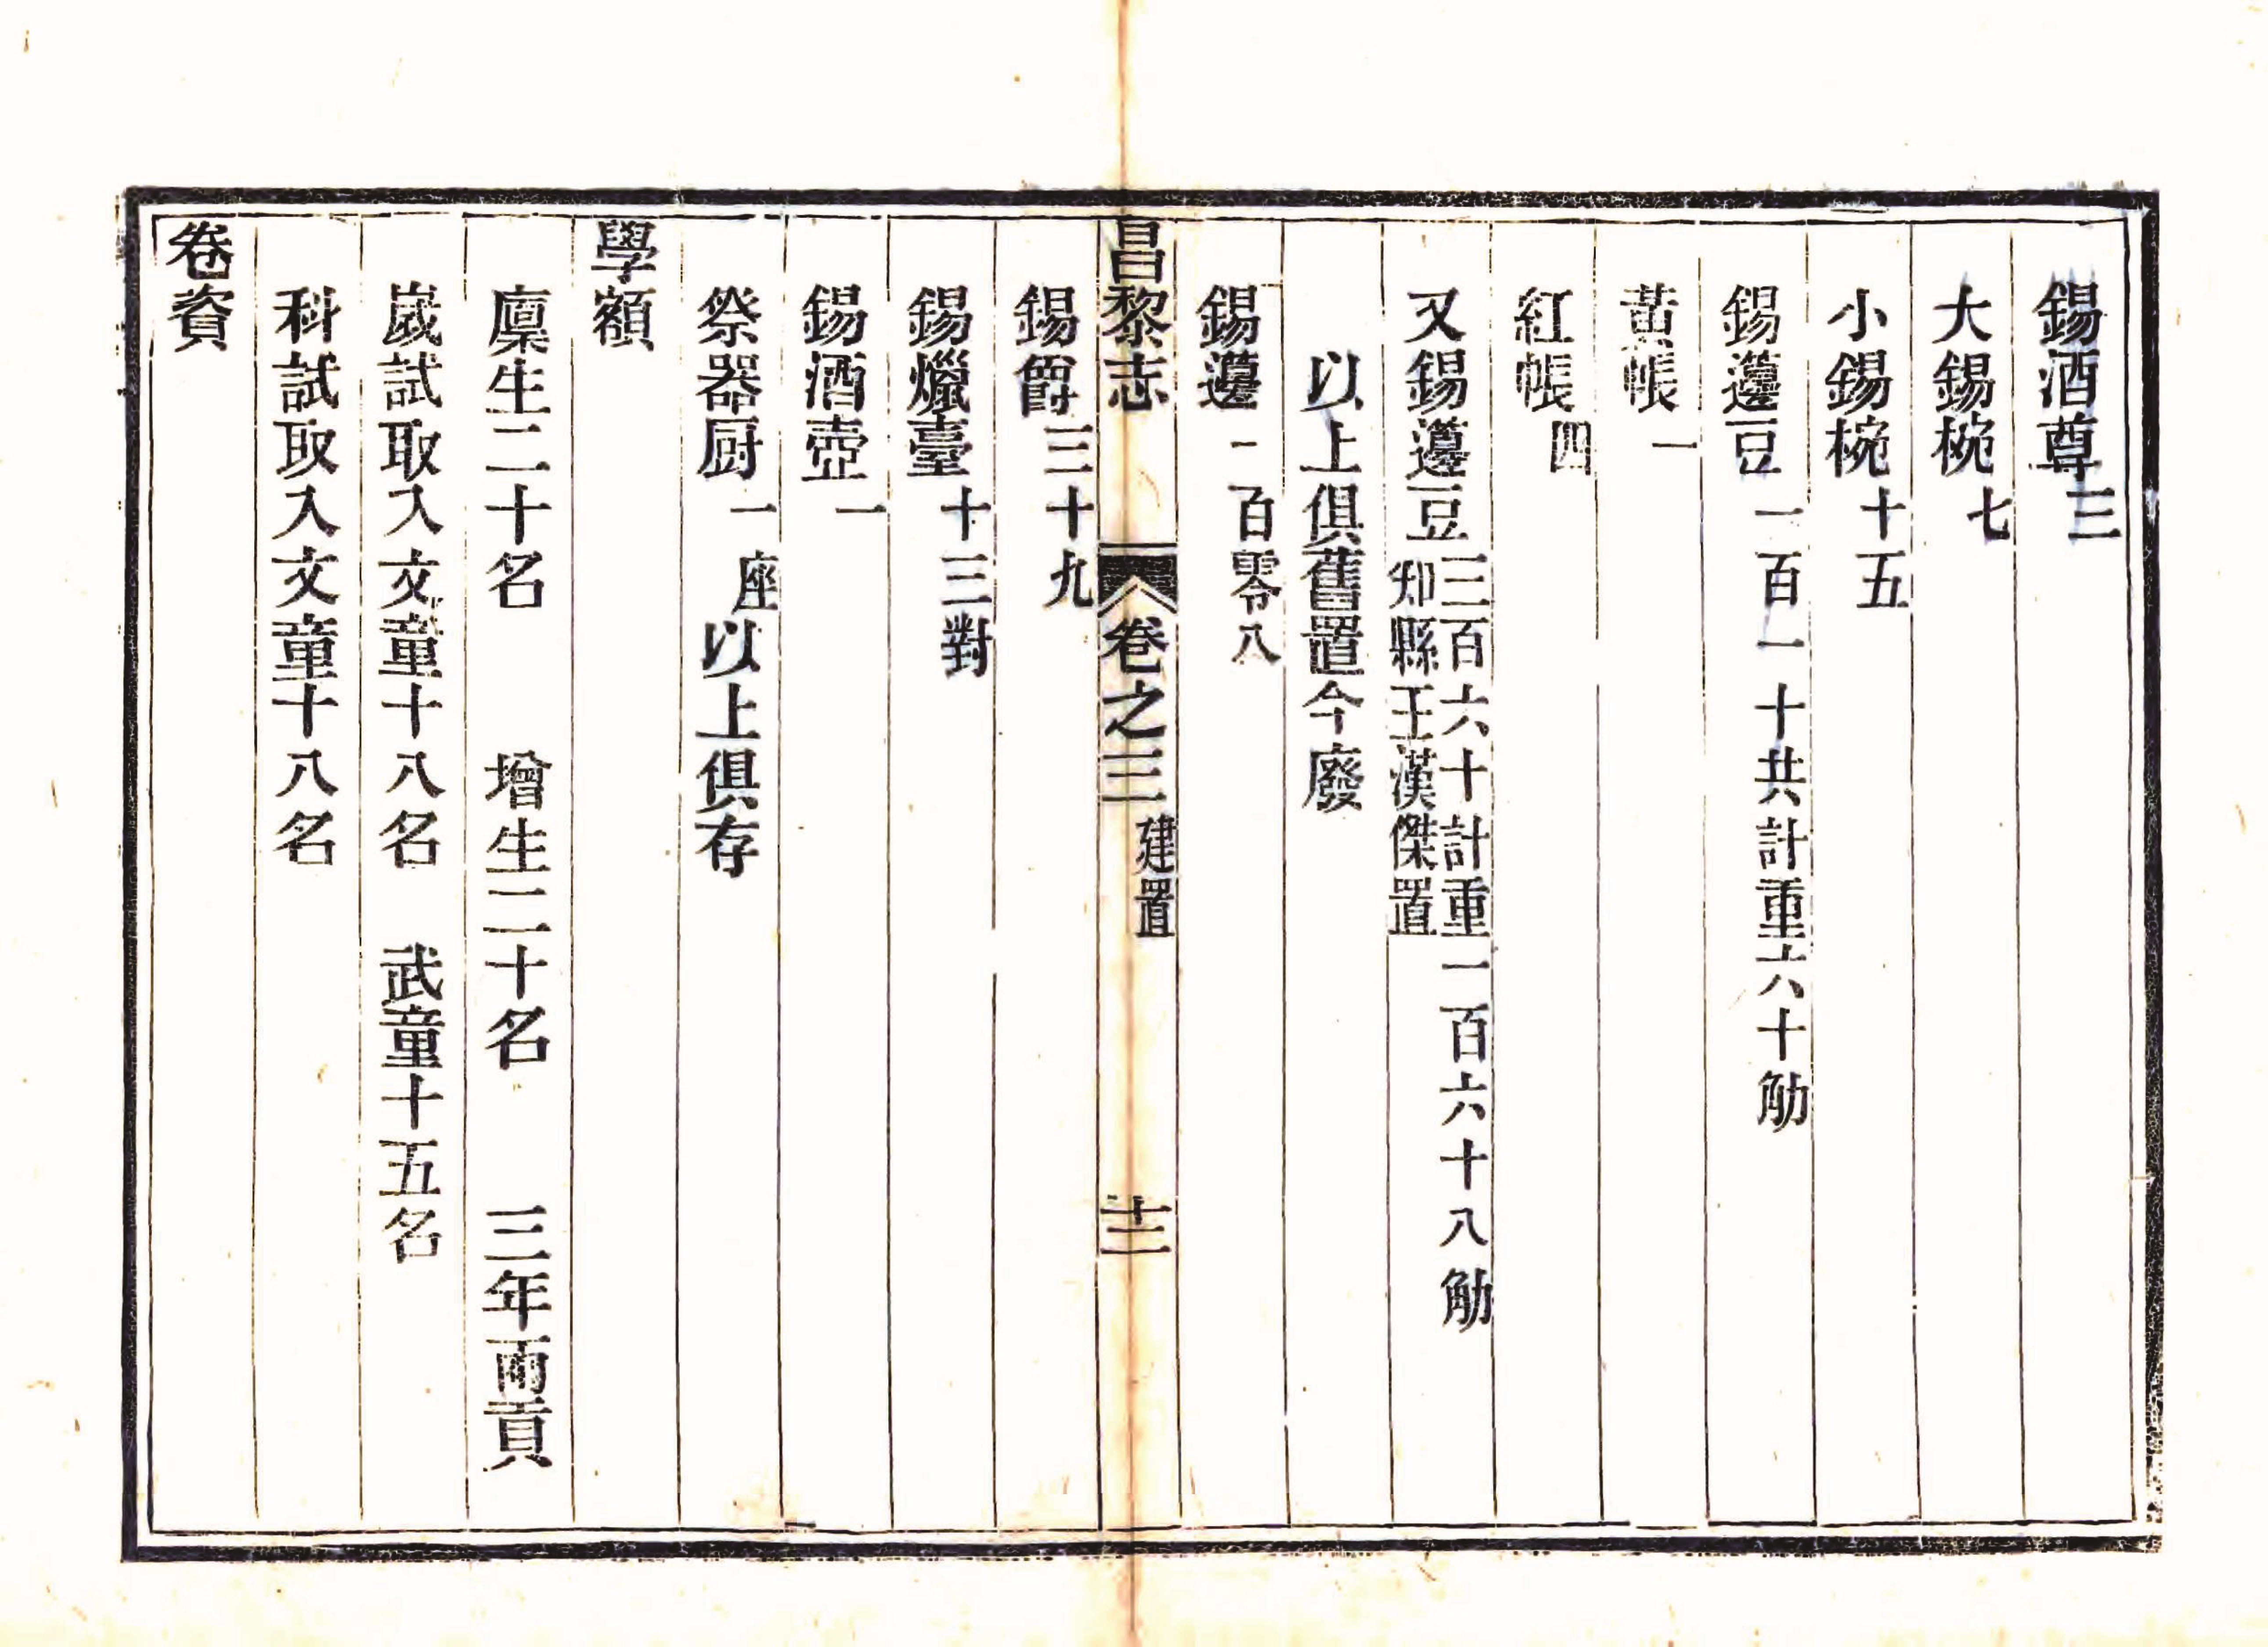 錫酒尊三
大錫椀七
小錫椀十五
錫籩豆一百一十共計重六十觔
黃帳一
紅帳四
又錫籩豆三百六十計重一百六十八觔
知縣王漢傑置
以上俱舊置今廢
錫籩一百零八
昌黎志 卷之三 建置 十二
錫爵三十九
錫爉臺十三對
錫酒壺一
祭器厨一座以上俱存
學額
廩生二十名 增生二十名 三年兩貢
歲試取入文童十八名 武童十五名
科試取入文童十八名
卷資